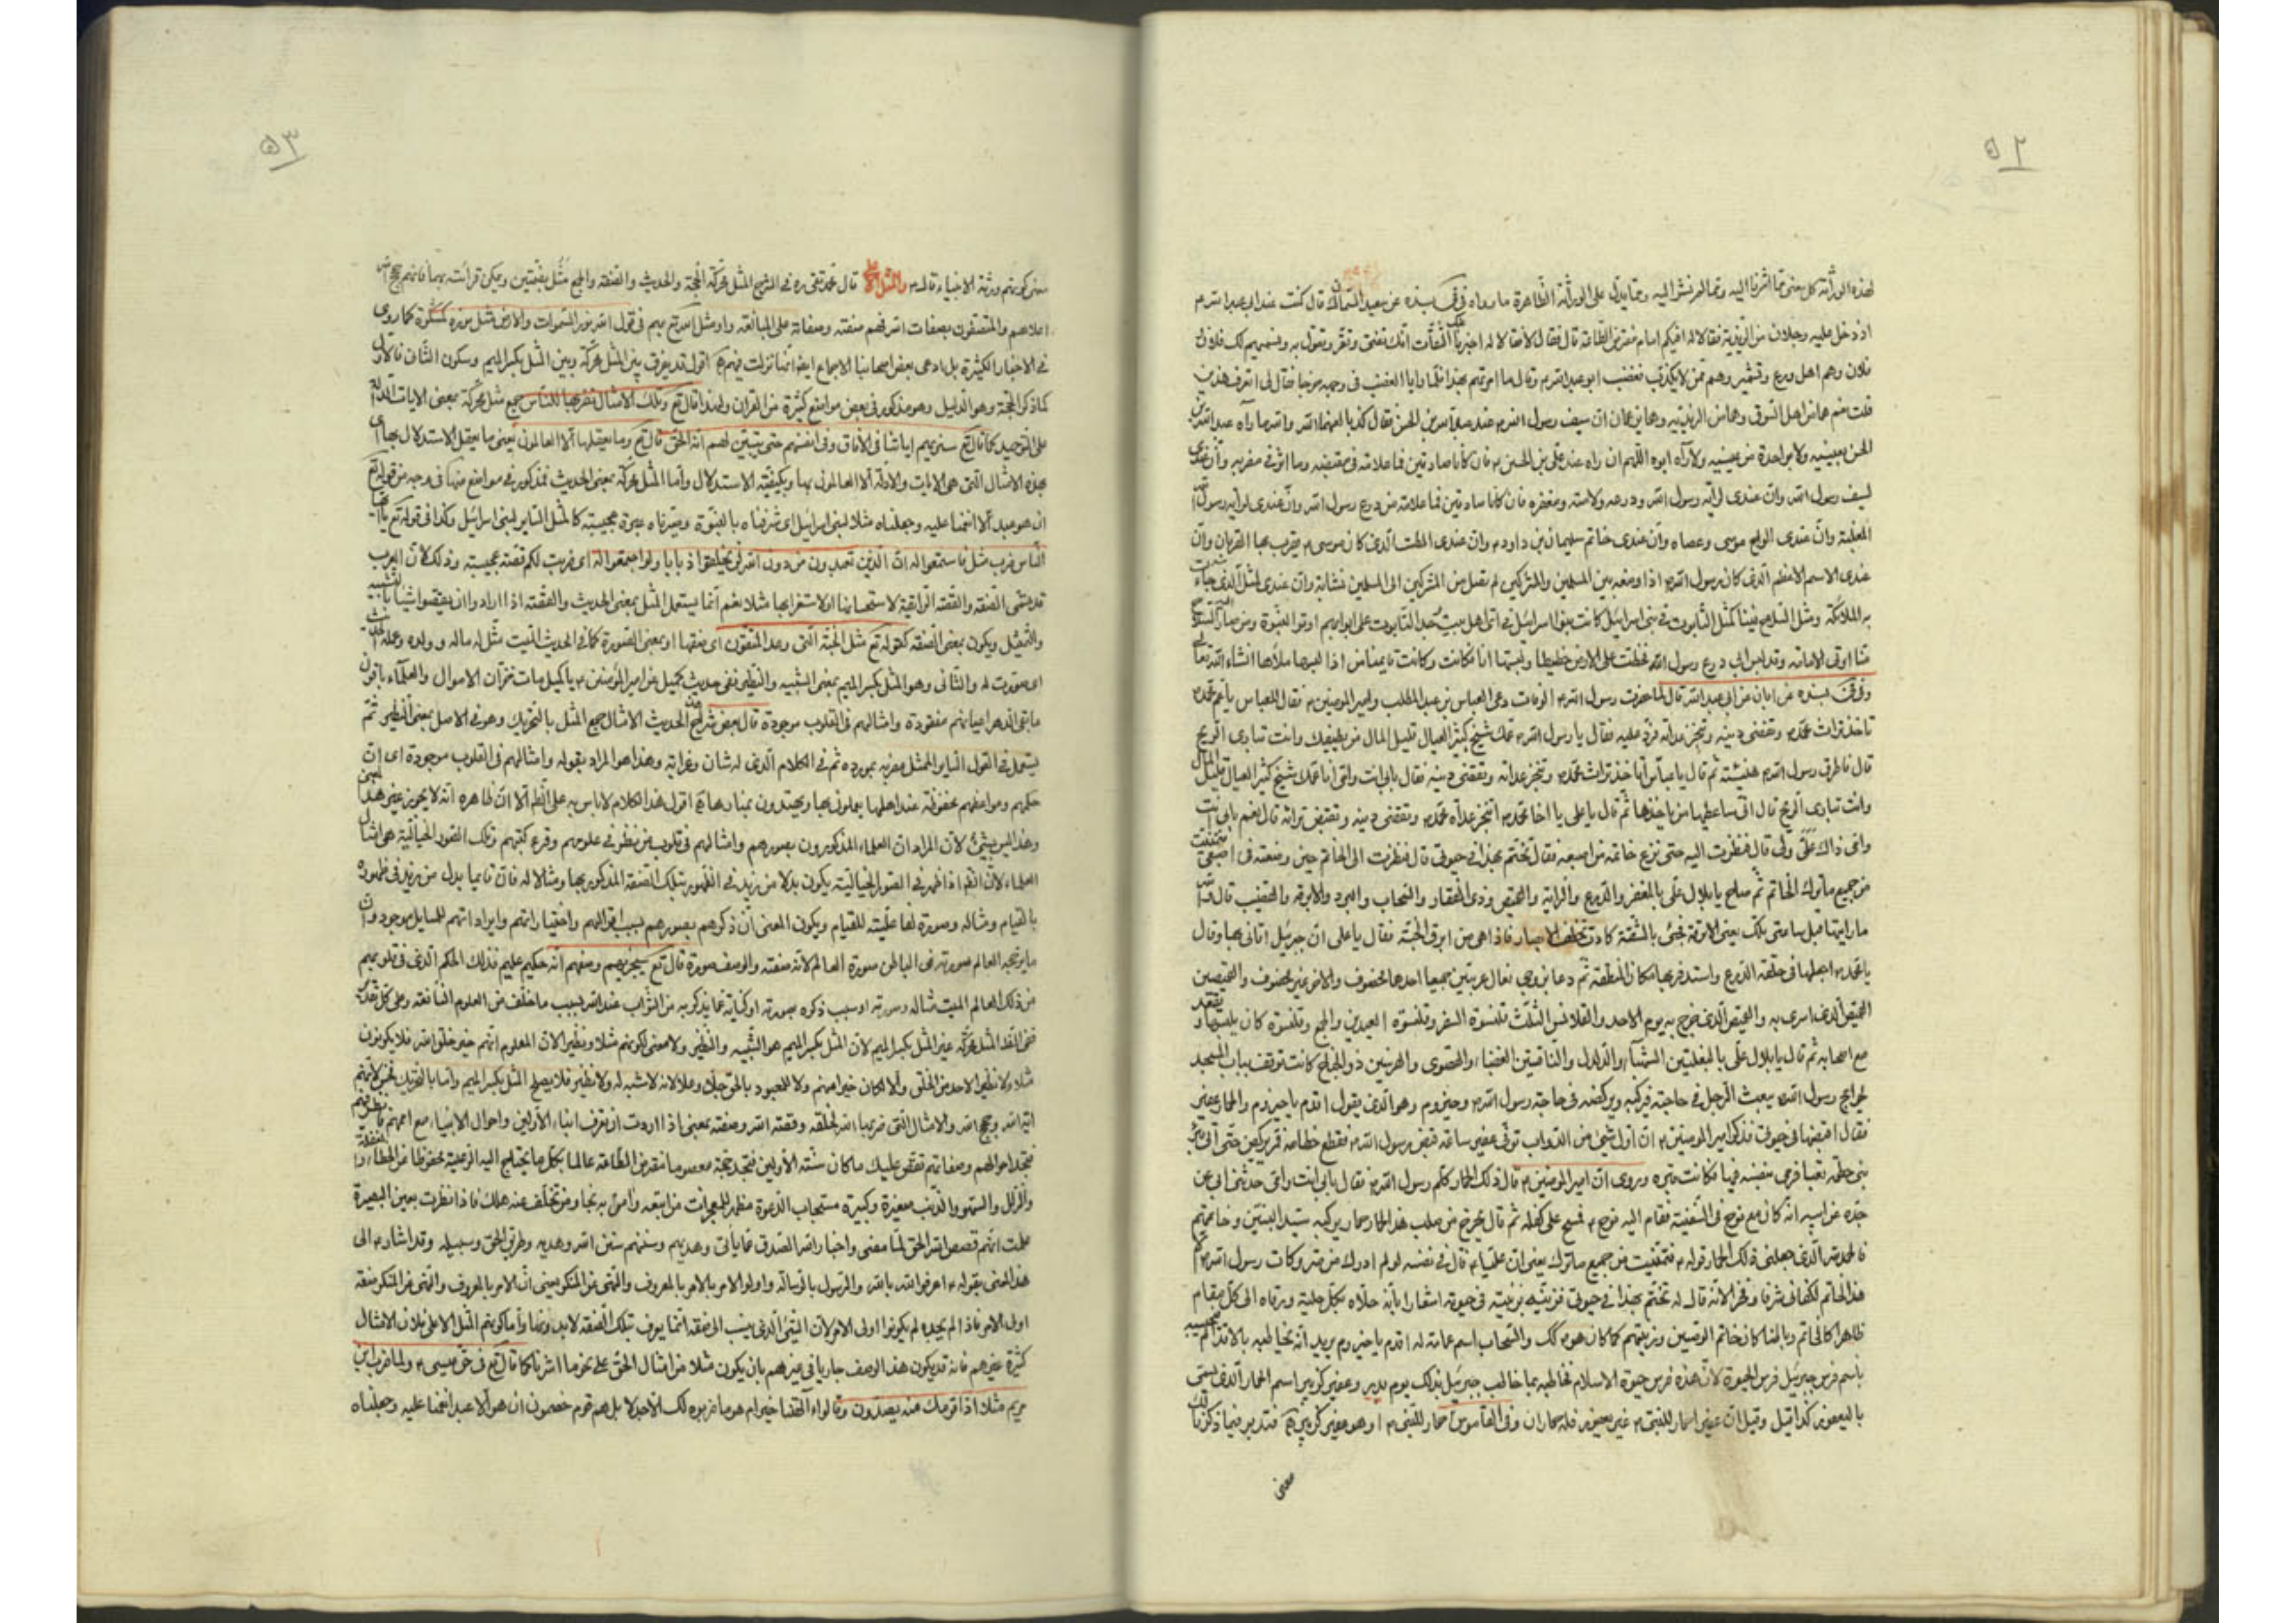 ٥٢
لهذه الوراثة كل بمعنى مما اشرنا اليه ومما لم نشر اليه ومما يدل على الوراثة الظاهرة ما رواه في بسنده عن سعيد السمان قال كنت عند ابي عبد الله م
اذ دخل عليه رجلان من الزيدية فقالا له افيكم امام مفترض الطاعة قال فقال لا فقالا له اخبرنا عنك الثقات انك تفتى وتقر وتقول به ونسميهم لك فلان و
فلان وهم اهل ورع وتشمير وهم ممن لا يكذب فغضب ابو عبد الله م وقال ما امرتهم بهذا فلما رايا الغضب في وجهه خرجا فقال لى اتعرف هذين
قلت نعم هما من اهل السوق وهما من الزيدية وهما يزعمان ان سيف رسول الله م عند عبد الله بن الحسن فقال كذبا لعنهما الله والله ما رآه عبد الله بن
الحسن بعينيه ولا بواحدة من عينيه ولا رآه ابوه اللهم الا ان يكون راه عند على بن الحسين م فان كانا صادقين فما علامة في مقبضه وما اثر في مضربه وان عندى
لسيف رسول الله وان عندى لراية رسول الله ودرعه ولامته ومغفره فان كانا صادقين فما علامة من درع رسول الله وان عندى لراية رسول الله
المغلبة وان عندى الواح موسى وعصاه وان عندى خاتم سليمان بن داود م وان عندى الطست الذى كان موسى م يقرب بها القربان وان
عندى الاسم الاعظم الذى كان رسول الله م اذا وضعه بين المسلمين والمشركين لم يصل من المشركين الى المسلمين نشابة وان عندى لمثل الذى جاءت
به الملائكة ومثل السلاح فينا كمثل التابوت في بنى اسرائيل كانت بنوا اسرائيل في اى اهل بيت وجد التابوت على ابوابهم اوتوا النبوة ومن صار اليه السلاح
منا اوتى الامامة ولقد لبس ابي درع رسول الله فخطت على الارض خطيطا ولبستها انا فكانت وكانت وقائمنا من اذا لبسها ملأها انشاء الله تعالى
وفي في بسنده عن ابان عن ابي عبد الله قال لما حضرت رسول الله م الوفات دعى العباس بن عبد المطلب وامير المؤمنين م فقال للعباس يا عم محمد م
تاخذ تراث محمد م وتقضى دينه وتنجز عداته فرد عليه فقال يا رسول الله م عمك شيخ كثير العيال قليل المال من يطيقك وانت تبارى الريح
قال فاطرق رسول الله م هنيئة ثم قال يا عباس اتاخذ تراث محمد م وتنجز عداته وتقضى دينه فقال بابى انت وامى انا عمك شيخ كثير العيال قليل المال
وانت تبارى الريح قال انى ساعطيها من ياخذها ثم قال يا على يا اخا محمد م اتنجز عداة محمد م وتقضى دينه وتقبض تراثه قال نعم بابى انت
وامى ذاك على ولى قال فنظرت اليه حتى نزع خاتمه من اصبعه فقال تختم بهذا في حيوتى قال فنظرت الى الخاتم حين وضعته في اصبعى فتمنيت
من جميع ما ترك الخاتم ثم صاح يا بلال على بالمغفر والدرع والراية والقميص وذى الفقار والسحاب والبرد والابرقه والقضيب قال فو الله
ما رايتها قبل ساعتى تلك يعنى الابرقة فجئ بالشقة كادت تخطف الابصار فاذا هى من ابرق الجنة فقال يا على ان جبرئيل اتانى بها وقال
يا محمد م اجعلها في حلقة الدرع واستدفر بها مكان المنطقة ثم دعا بزوجى نعال عربيتين جميعا احدهما مخصوف والاخر غير مخصوف والقميصين
القميص الذى اسرى به والقميص الذى خرج به يوم الاحد والقلانس الثلث قلنسوة السفر وقلنسوة العيدين والجمع وقلنسوة كان يلبسها ويقعد
مع اصحابه ثم قال يا بلال على بالبغلتين الشهباء والدلدل والناقتين العضباء والقصوى والفرسين ذو الجناح كانت توقف بباب المسجد
لحوايج رسول الله م يبعث الرجل في حاجته فيركبه ويركضه في حاجة رسول الله م وحيزوم وهو الذى يقول اقدم يا حيزوم والحمار عفير
فقال اقبضها في حيوتى فذكر امير المؤمنين م ان اول شئ من الدواب توفى عفير ساعة قبض رسول الله م فقطع خطامه ثم مر يركض حتى اتى بئر
بنى خطمه بقبا فرمى بنفسه فيها فكانت قبره وروى ان امير المؤمنين م قال ذلك الحمار كلم رسول الله م فقال بابى انت وامى حدثنى ابى عن
جده عن ابيه انه كان مع نوح في السفينة فقام اليه نوح م فمسح على كفله ثم قال يخرج من صلب هذا الحمار حمار يركبه سيد النبيين وخاتمهم
فالحمد لله الذى جعلنى ذلك الحمار قوله م فتمنيت من جميع ما ترك يعنى ان عليا م قال في نفسه لو لم ادرك من متروكات رسول الله م الا
هذا الخاتم لكفانى شرفا وفخرا لانه قال له تختم بهذا في حيوتى فزينته بزينته في حيوته اشعارا بانه حلاه بكل حلية ورقاه الى كل مقام
ظاهرا كالخاتم وباطنا كان خاتم الوصيين وزينتهم كما كان هو م كك والسحاب اسم عمامته له اقدم يا حيزوم يريد انه يخاطبه بالاقدام
باسم فرس جبرئيل فرس الحيوة لان هذه فرس حيوة الاسلام تخاطبه بما خاطب جبرئيل بذلك يوم بدر وعفير كزبير اسم الحمار الذى يسمى
باليعفور كذا قيل وقيل ان عفير احمار للنبى م غير يعفور فله حماران وفي القاموس حمار للنبى م او هو عفير كزبير فتدبر فيما ذكرنا لك
معنى
٥٣
معنى كونهم ورثة الانبياء قال م والمثل الاعلى قال محمد تقى ره في الشرح المثل محركة الحجة والحديث والصفة والجمع مثل بضمتين ويمكن قرائته بهما فانهم حجج الله
اعلاهم والمتصفون بصفات الله فهم صفته وصفاته على المبالغة او مثل الله تع بهم في قول الله نور السموات والارض مثل نوره كمشكوة كما روى
في الاخبار الكثيرة بل ادعى بعض اصحابنا الاجماع ايضا انها نزلت فيهم اقول قد يفرق بين المثل محركة وبين المثل بكسر الميم وسكون الثاني فالاول
كما ذكر الحجة وهو الدليل وهو مذكور في بعض مواضع كثيرة من القران ولهذا قال تع وتلك الامثال نضربها للناس جمع مثل محركة بمعنى الايات الدالة
على التوحيد كما قال تع سنريهم اياتنا في الافاق وفي انفسهم حتى يتبين لهم انه الحق قال تع وما يعقلها الا العالمون يعنى ما يعقل الاستدلال بها اى
بهذه الامثال التى هى الايات والادلة الا العالمون بها وبكيفية الاستدلال واما المثل محركة بمعنى الحديث فمذكور في مواضع منها في وجه من قوله تع
ان هو الا عبد انعمنا عليه وجعلناه مثلا لبنى اسرائيل اى شرفناه بالنبوة وصيرناه عبرة عجيبة كالمثل الساير لبنى اسرائيل وكذا في قوله تع يا ايها
الناس ضرب مثل فاستمعوا له ان الذين تعبدون من دون الله لن يخلقوا ذبابا ولو اجتمعوا له اى ضربت لكم قصة عجيبة وذلك لان العرب
قد تسمى الصفة والقصة الرائقة لاستحسانها او لاستغرابها مثلا نعم انما يستعمل المثل بمعنى الحديث والقصة اذا اراد وان يقصوا شيئا بالتشبيه
والتمثيل ويكون بمعنى الصفة كقوله تع مثل الجنة التى وعد المتقون اى صفتها او بمعنى الصورة كما في الحديث الميت مثل له ماله وولده وعمله الحديث
اى صورت له والثانى وهو المثل بكسر الميم بمعنى الشبيه والنظير ففي حديث كميل عن امير المؤمنين م يا كميل مات خزان الاموال والعلماء باقون
ما بقى الدهر اعيانهم مفقودة وامثالهم في القلوب موجودة قال بعض شراح الحديث الامثال جمع المثل بالتحريك وهو في الاصل بمعنى النظير ثم
يستعمل في القول الساير الممثل مضربه بمورده ثم في الكلام الذى له شان وغرابة وهذا هو المراد بقوله وامثالهم في القلوب موجودة اى ان
حكمهم ومواعظهم محفوظة عند اهلها يعملون بها ويهتدون بمنارها اقول هذا الكلام لا باس به على انظم الا ان ظاهره انه لا يجوز غير هذا المعنى
وهذا ليس بشئ لان المراد ان العلماء المذكورون بصورهم وامثالهم في قلوب من نظر في علومهم وقرء كتبهم وتلك الصور الخيالية هى امثال
العلماء لان انظم اذا ظهر في الصور الخيالية يكون بدلا من زيد في الظهور بتلك الصفة المذكور بها ومثالا له فان قائما بدل من زيد في ظهوره
بالقيام ومثاله وصورة لفاعليته للقيام ويكون المعنى ان ذكرهم بصورهم بسبب اقوالهم واختياراتهم وايراداتهم للمسايل موجود وان
ما يرتجيه العالم صورته في الباطن سورة العالم لانه صفته والوصف صورة قال تع سيجزيهم وصفهم انه حكيم عليم فذلك الحكم الذى في قلوبهم
من ذلك العالم الميت مثاله وصورته او سبب ذكره بصورته او كناية عما يذكر به من الثواب عند الله بسبب ما خلف من العلوم النافعة وعلى كل تقدير
فهى القد المثل محركة غير المثل بكسر الميم لان المثل بكسر الميم هو الشبيه والنظير ولا معنى لكونهم مثلا ونظيرا الا ان المعلوم انهم خير خلق الله فلا يكونون
مثلا ولا نظيرا لاحد من الخلق والا لكان خيرا منهم ولا للمعبود بالحق جل وعلا لانه لا شبه له ولا نظير فلا يصلح المثل بكسر الميم واما بالتحريك فحسن لانهم
اية الله وحجج الله والامثال التى ضربها الله لخلقه وقصة الله وصفته بمعنى اذا اردت ان تعرف انباء الاولين واحوال الانبياء مع اممهم فانظر فيهم
فتجد احوالهم وصفاتهم تقص عليك ما كان سنة الاولين فتجد حجة معصوما مفترض الطاعة عالما بكل ما يحتاج اليه الرعية محفوظا من الخطاء والغفلة
والزلل والسهو والذنب صغيرة وكبيرة مستجاب الدعوة مظهر للمعجزات من اتبعه وامن به نجا ومن تخلف عنه هلك فاذا نظرت بعين البصيرة
علمت انهم قصص الله الحق لنا معنى واخبار الله الصدق عما ياتى وهديهم وسننهم سنن الله وهديه وطريق الحق وسبيله وقد اشار م الى
هذا المعنى بقوله م اعرفوا الله بالله والرسول بالرسالة واولوا الامر بالامر بالمعروف والنهى عن المنكر يعنى ان الامر بالمعروف والنهى عن المنكر صفة
اولى الامر فاذا لم يجيبه لم يكونوا اولى الامر لان الشئ الذى ينسب الى صفة انما يعرف بتلك الصفة لا بد وضعا واما كونهم المثل الاعلى فلان الامثال
كثيرة غيرهم فانه قد يكون هذا الوصف جاريا في غيرهم بان يكون مثلا من امثال الحق على نحو ما اشرنا كما قال تع في حق عيسى م ولما ضرب ابن
مريم مثلا اذا قومك منه يصدون وقالوا ءآلهتنا خير ام هو ما ضربوه لك الا جدلا بل هم قوم خصمون ان هو الا عبد انعمنا عليه وجعلناه